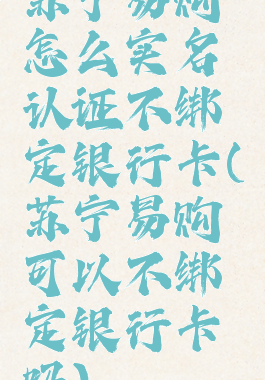 苏宁易购
怎么实名
认证不绑
定银行卡(
苏宁易购
可以不绑
定银行卡
吗)